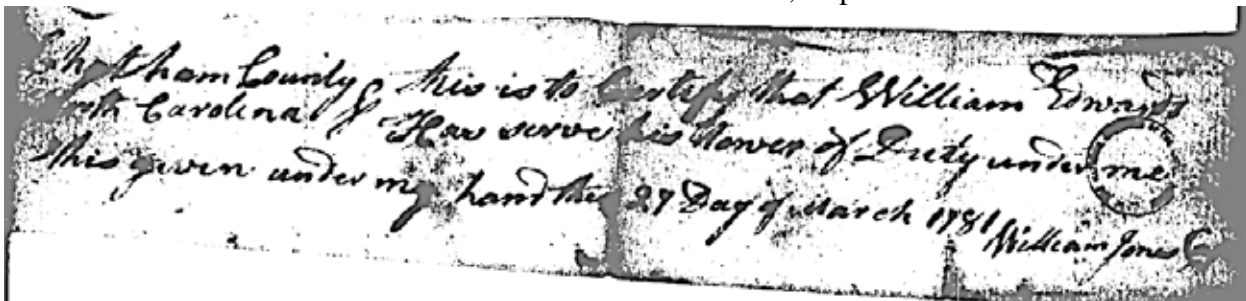 Chatham County } this is to Certify that William Edwards
North Carolina } Has serve his tower of Duty under me
this given under my hand the 27 Day of March 1781
William Jones C